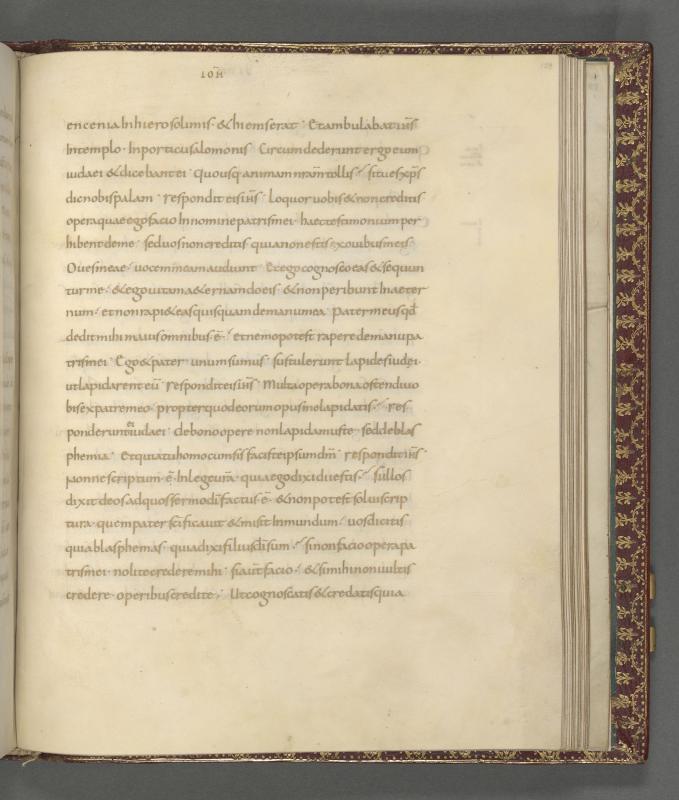 IOH̄
encenia Inhierosolimis · & hiemserat · Etambulabat iħs
Intemplo · Inporticusalomonis · Circumdederunt ergo eum
iudaei & dicebantei · Quousq· animam nr̄am tollis · situesxp̄s
dicnobispalam · respondit eis iħs · Loquor uobis & noncreditis
operaquaeegofacio Innomine patrismei · haectestimonium per
hibent deme · seduosnoncreditis quianonestis exouibusmeis ·
Ouesmeae · uocemmeam audiunt · Etego cognosco eas & sequun
turme · & ego uitam a&ernam do eis · & nonperibunt Inaeter
num · etnonrapi& eas quisquam demanumea · Pater meus qd̄
dedit mihi maius omnibus · ē · etnemopotest rapere demanu pa
trismei · Ego & pater unum sumus · sustulerunt lapides iudei ·
utlapidarent eū · respondit eis iħs · Multa opera bona ostendi uo
bis expatremeo · propterquodeorum opus me lapidatis · res
ponderunt ei iudaei · debono opere nonlapidamus te · sed deblas
phemia · Etquia tu homo cum sis facis teipsum dm̄ · respondit iħs
nonne scriptum · ē · Inlegeur̄a · quia ego dixi dii estis · si illos
dixit deos adquos sermo dī factus · ē · & nonpotest solui scrip
tura · quem pater sc̄ificauit & misit Inmundum · uos dicitis
quia blasphemas · quia dixi filius dī sum · si nonfacio opera pa
trismei · nolite credere mihi · si aut̄ facio · & si mihi non uultis
credere · operibus credite · Ut cognoscatis & credatis quia